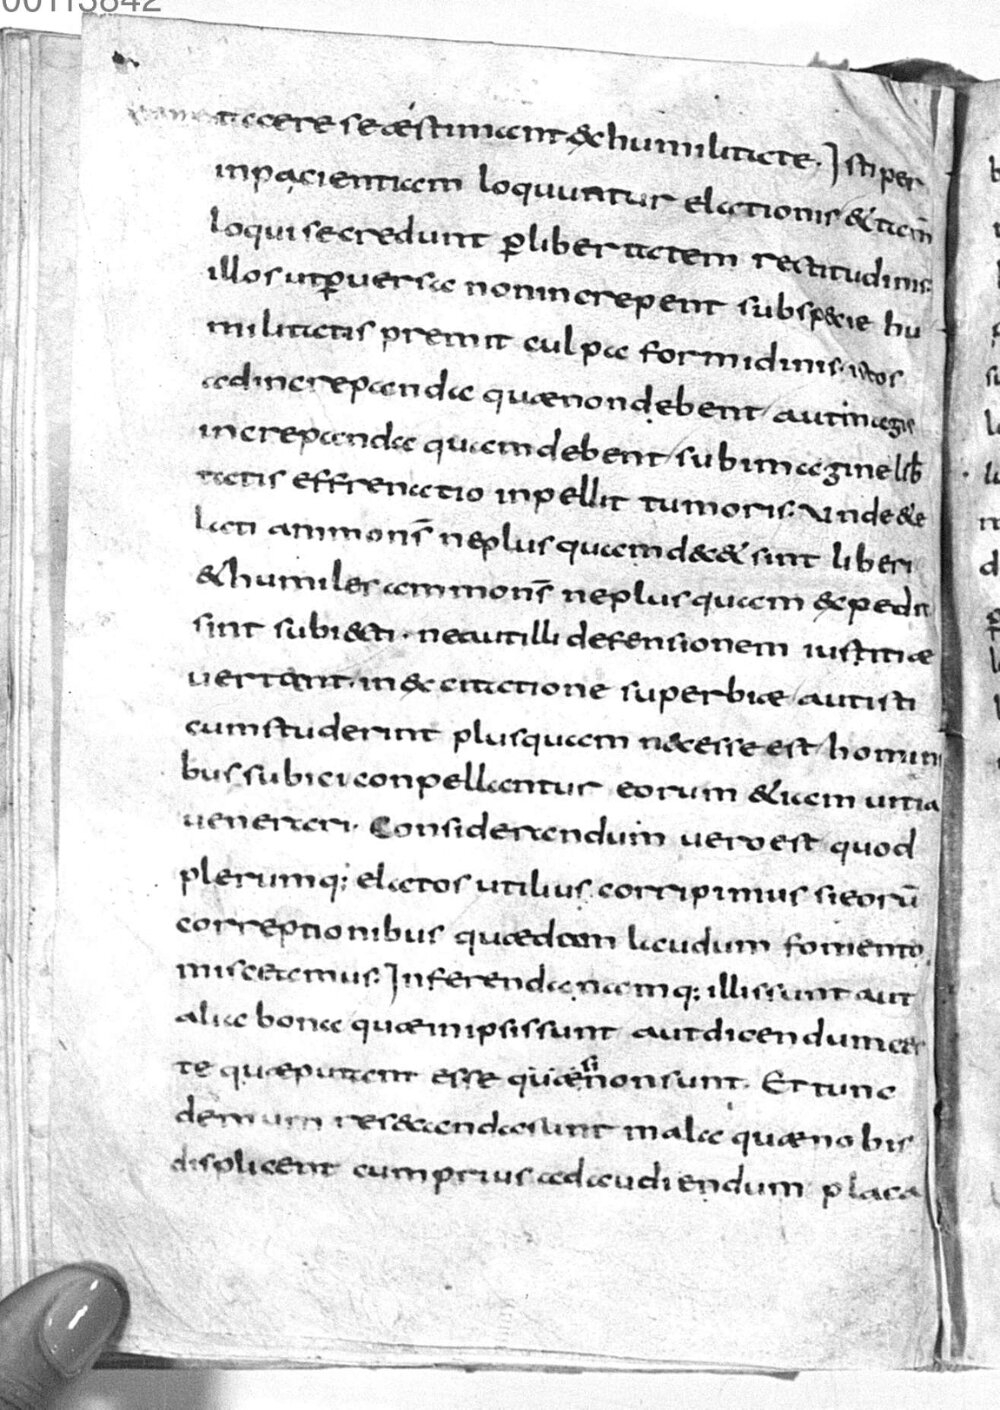 00113842
tacere se aestimant & humilitate. Isti per
inpacientiam loquuntur elationis & tam̄
loqui se credunt ꝑ libertatem rectitudinis.
illos ut ꝑuersa non increpent sub sp&cie hu
militatis premit culpa formidinis. istos
ad increpanda quae non debent aut magis
increpanda quam debent sub imagine lib̄
tatis effrenatio inpellit tumoris. Unde & e
lati ammon̄s ne plus quam dec& sint liberi
& humiles ammon̄s ne plus quam expedit
sint subiecti. ne aut illi defensionem iustitiae
vertant. in exaltatione superbiae aut isti
cum studerint plus quam n&cesse est homini
bus subici conpellantur eorum &iam uitia
venerari. Considerandum vero est quod
plerumq; elatos utilius corripimus si eorū
correptionibus quaedam laudum fomenta
miscemus. Inferenda namq; illis sunt aut
alia bona quae in ipsis sunt aut dicendum cer
te quae putant esse quae si non sunt. Et tunc
demum resecanda sunt mala quae nobis
displicent cum prius ad audiendum placa